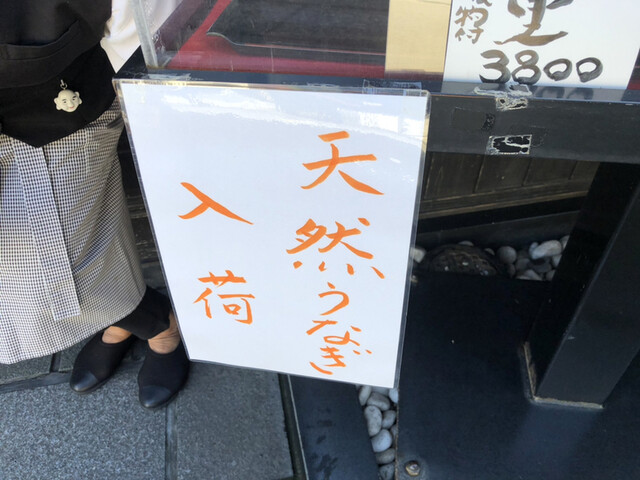 天然うなぎ
入荷
3800